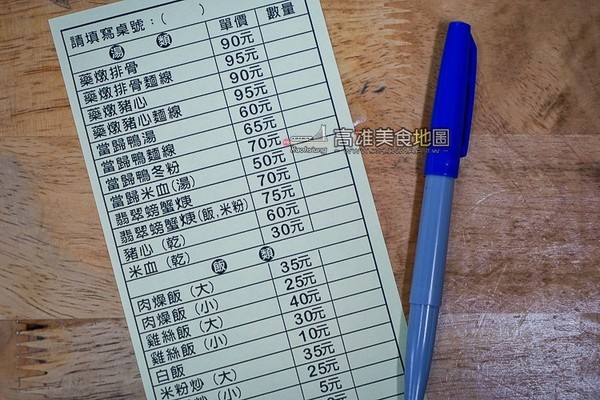 請填寫桌號：（　）　單價　數量
湯 類
藥燉排骨　90元
藥燉排骨麵線　95元
藥燉豬心　90元
藥燉豬心麵線　95元
當歸鴨湯　60元
當歸鴨麵線　65元
當歸鴨冬粉　70元
當歸米血(湯)　50元
翡翠螃蟹焿　70元
翡翠螃蟹焿(飯,米粉)　75元
豬心（乾）　60元
米血（乾）　30元
飯 類
肉燥飯（大）　35元
肉燥飯（小）　25元
雞絲飯（大）　40元
雞絲飯（小）　30元
白飯　10元
米粉炒（大）　35元
（小）　25元
5元
高雄美食地圖